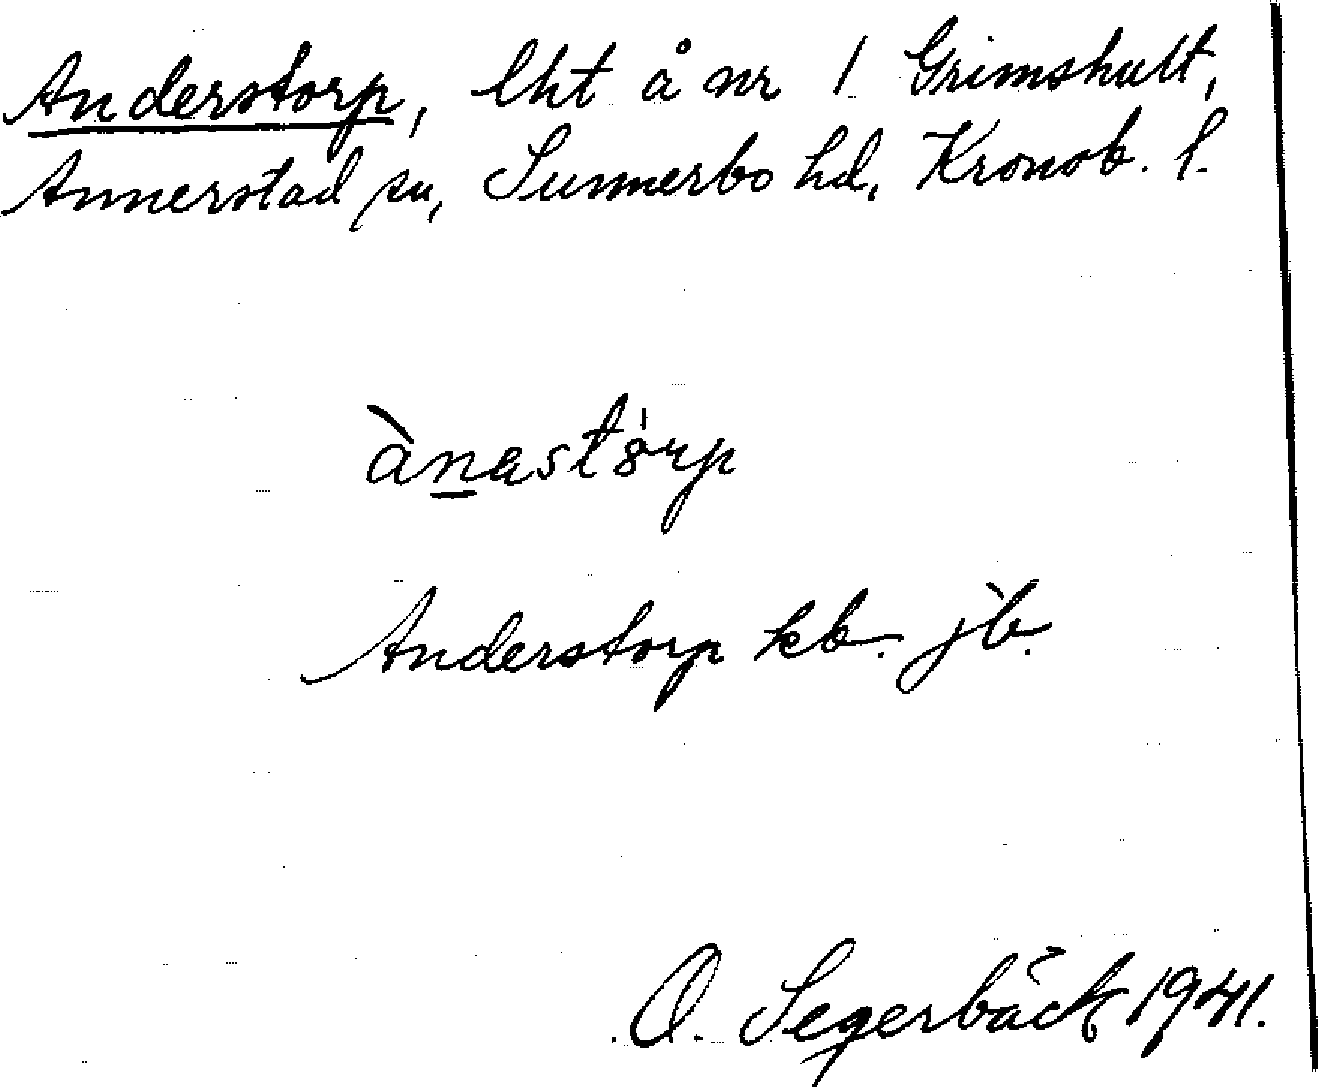 Anderstorp, lht å nr 1 Grimshult,
Annerstad sn, Sunnerbo hd, Kronob. l.
ànastórp
Anderstorp kb. jb.
O. Segerbäck 1941.